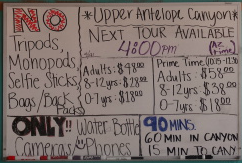 NO
Tripods,
Monopods
Selfie Sticks
Bags/Back
Packs
*Upper Antelope Canyon*
NEXT TOUR AVAILABLE
4:00pm
(AZ. Time)
Adults: $48.00
8-12yrs: $28.00
0-7yrs: $18.00
Prime Time (10:15-12:30)
Adults: $58.00
8-12yrs: $38.00
0-7yrs: $18.00
ONLY!! Water Bottle
Cameras Phones
90 MINS.
60 MIN IN CANYON
15 MIN TO CANY